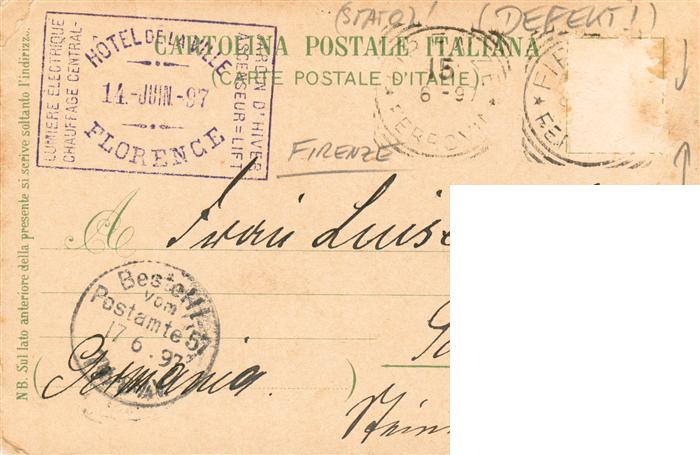 (STATO2)! (DEFEKT!)
CARTOLINA POSTALE ITALIANA
(CARTE POSTALE D'ITALIE).
HOTEL DE LA VILLE
14.-JUIN.-97
FLORENCE
LUMIÈRE ELECTRIQUE
CHAUFFAGE CENTRAL-
JARDIN D'HIVER
ASCENSEUR=LIFT
15
6-97
FERROVIA
FIRENZE
A Frau Luise
Bestellt
vom
Postamte 57
17 6.97
Germania.
NB. Sul lato anteriore della presente si scrive soltanto l'indirizzo.